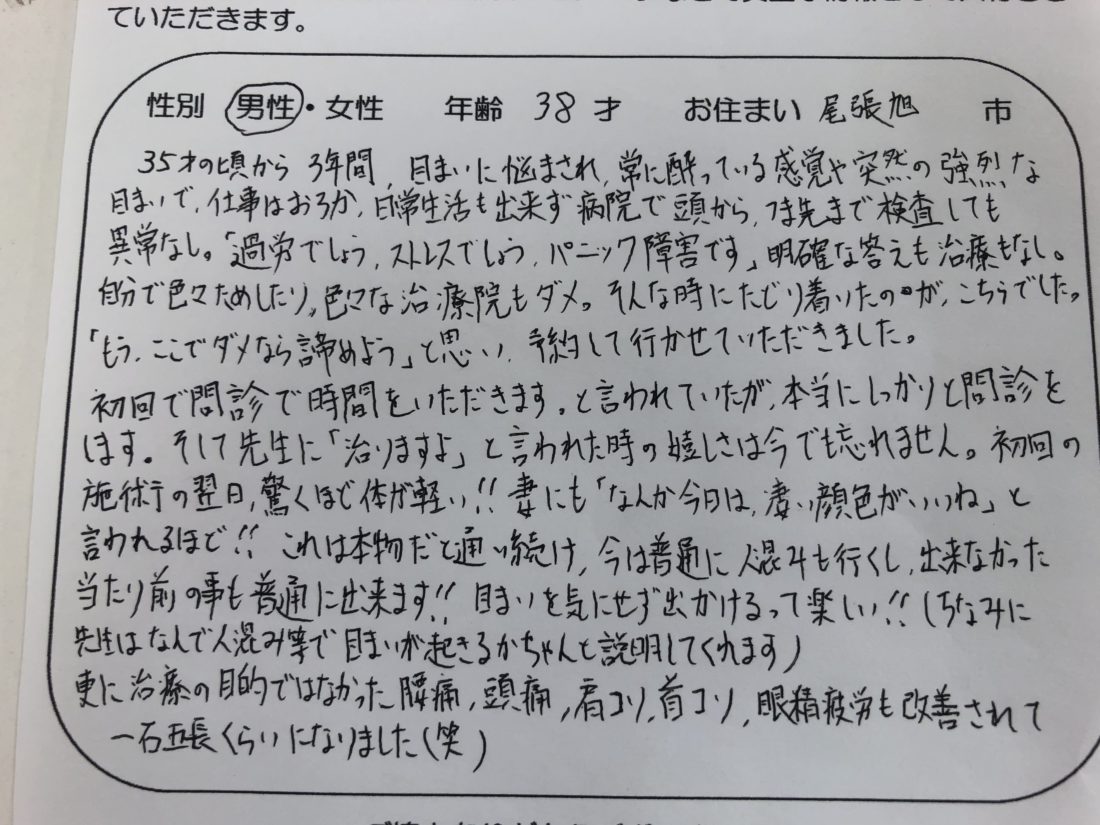 ていただきます。
性別 男性・女性 年齢 38 才 お住まい 尾張旭 市
35才の頃から 3年間、目まいに悩まされ、常に酔っている感覚や突然の強烈な
目まいで、仕事はおろか、日常生活も出来ず病院で頭から、つま先まで検査しても
異常なし。「過労でしょう、ストレスでしょう、パニック障害です」明確な答えも治療もなし。
自分で色々ためしたり、色々な治療院もダメ。そんな時にたどり着いたのが、こちらでした。
「もう、ここでダメなら諦めよう」と思い、予約して行かせていただきました。
初回で問診で時間をいただきます。と言われていたが、本当にしっかりと問診を
します。そして先生に「治りますよ」と言われた時の嬉しさは今でも忘れません。初回の
施術の翌日、驚くほど体が軽い!!妻にも「なんか今日は、凄い顔色がいいね」と
言われるほど!!これは本物だと通い続け、今は普通に人混みも行くし、出来なかった
当たり前の事も普通に出来ます!!目まいを気にせず出かけるって楽しい!!(ちなみに
先生はなんで人混み等で目まいが起きるかちゃんと説明してくれます)
更に治療の目的ではなかった腰痛,頭痛,肩コリ,首コリ,眼精疲労も改善されて
一石五長くらいになりました(笑)